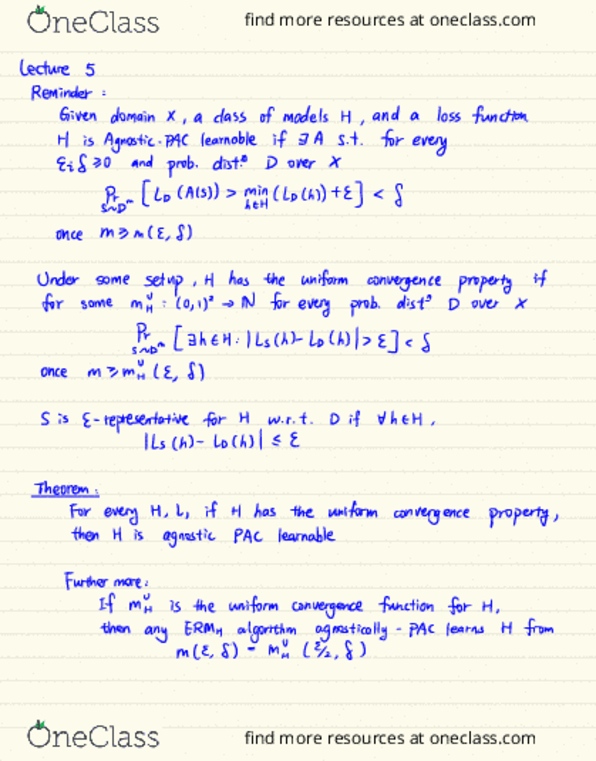 OneClass find more resources at oneclass.com
Lecture 5
Reminder :
Given domain X, a class of models H, and a loss function
H is Agnostic-PAC learnable if ∃ A s.t. for every
ε, δ ≥ 0 and prob. dist.ⁿ D over X
Pr S~Dᵐ [ L_D(A(S)) > min h∈H (L_D(h)) + ε ] < δ
once m ≥ m(ε, δ)
Under some setup, H has the uniform convergence property if
for some m_H^U : (0,1)² → ℕ for every prob. distⁿ D over X
Pr S~Dᵐ [ ∃h∈H : |L_S(h) - L_D(h)| > ε ] < δ
once m ≥ m_H^U (ε, δ)
S is ε-representative for H w.r.t. D if ∀h∈H,
|L_S(h) - L_D(h)| ≤ ε
Theorem :
For every H, L, if H has the uniform convergence property,
then H is agnostic PAC learnable
Further more :
If m_H^U is the uniform convergence function for H,
then any ERM_H algorithm agnostically - PAC learns H from
m(ε, δ) = m_H^U (ε/2, δ)
OneClass find more resources at oneclass.com